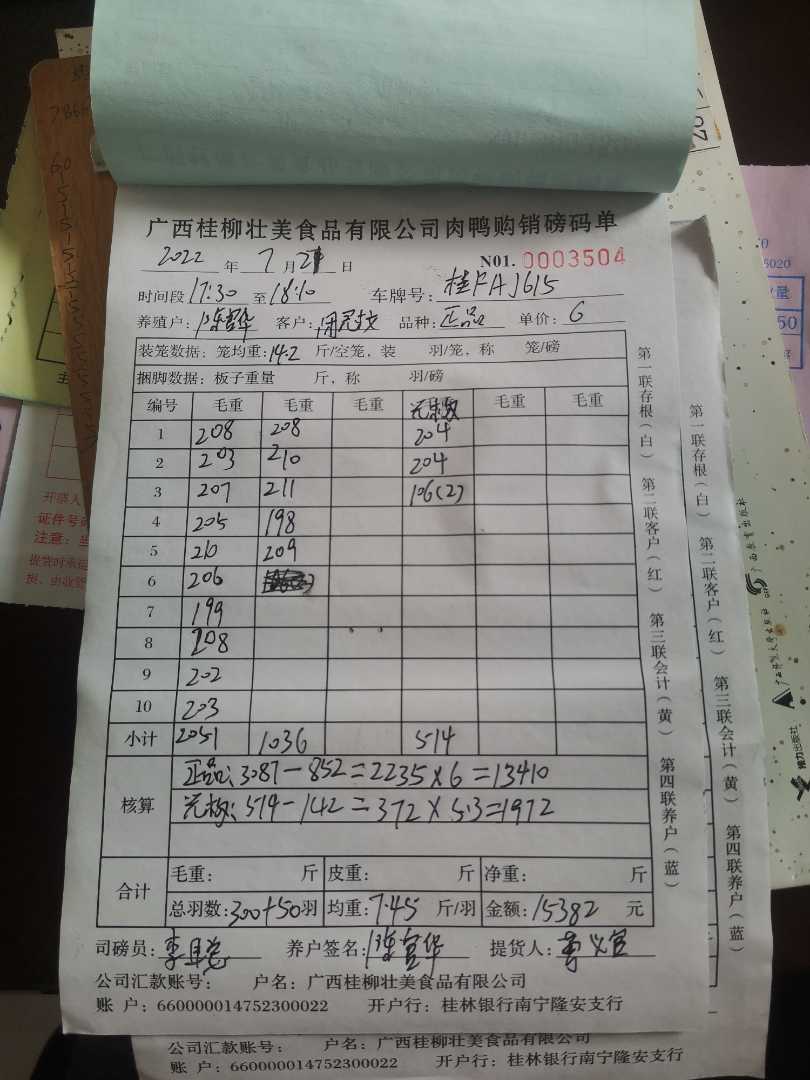 广西桂柳壮美食品有限公司肉鸭购销磅码单
2022 年 7 月 21 日 N01. 0003504
时间段 17:30 至 18:10 车牌号: 桂FAJ615
养殖户: 陈富华 客户: 品种: 正品 单价: 6
装笼数据: 笼均重: 14.2 斤/空笼, 装 羽/笼, 称 笼/磅
捆脚数据: 板子重量 斤, 称 羽/磅
编号 毛重 毛重 毛重 毛重 毛重
1 208 208 204
2 203 210 204
3 207 211 106(2)
4 205 198
5 210 209
6 206
7 199
8 208
9 202
10 203
小计 2051 1036 514
核算 正品: 3087-852=2235×6=13410
514-142=372×5.3=1972
合计 毛重: 斤 皮重: 斤 净重: 斤
总羽数: 300+50 羽 均重: 7.45 斤/羽 金额: 15382 元
司磅员: 养户签名: 陈富华 提货人:
公司汇款账号: 户名: 广西桂柳壮美食品有限公司
账 户: 660000014752300022 开户行: 桂林银行南宁隆安支行
第一联存根(白) 第二联客户(红) 第三联会计(黄) 第四联养户(蓝)
第一联存根(白) 第二联客户(红) 第三联会计(黄) 第四联养户(蓝)
公司汇款账号: 户名: 广西桂柳壮美食品有限公司
账 户: 660000014752300022 开户行: 桂林银行南宁隆安支行
开票人
证件号码
注意: